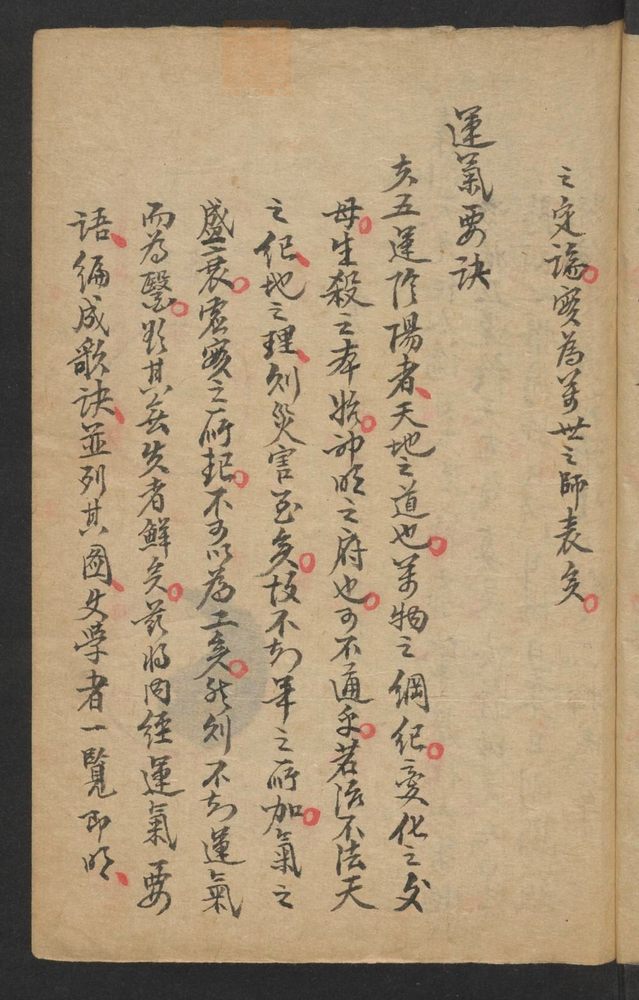 之定論實為萬世之師表矣
運氣要訣
夫五運陰陽者天地之道也萬物之綱紀變化之父
母生殺之本始神明之府也可不通乎若治不法天
之紀地之理則災害至矣故不知年之所加氣之
盛衰虛實之所起不可以為工矣然則不知運氣
而為醫欲其無失者鮮矣茲將內經運氣要
語編成歌訣並列其圖使學者一覽即明